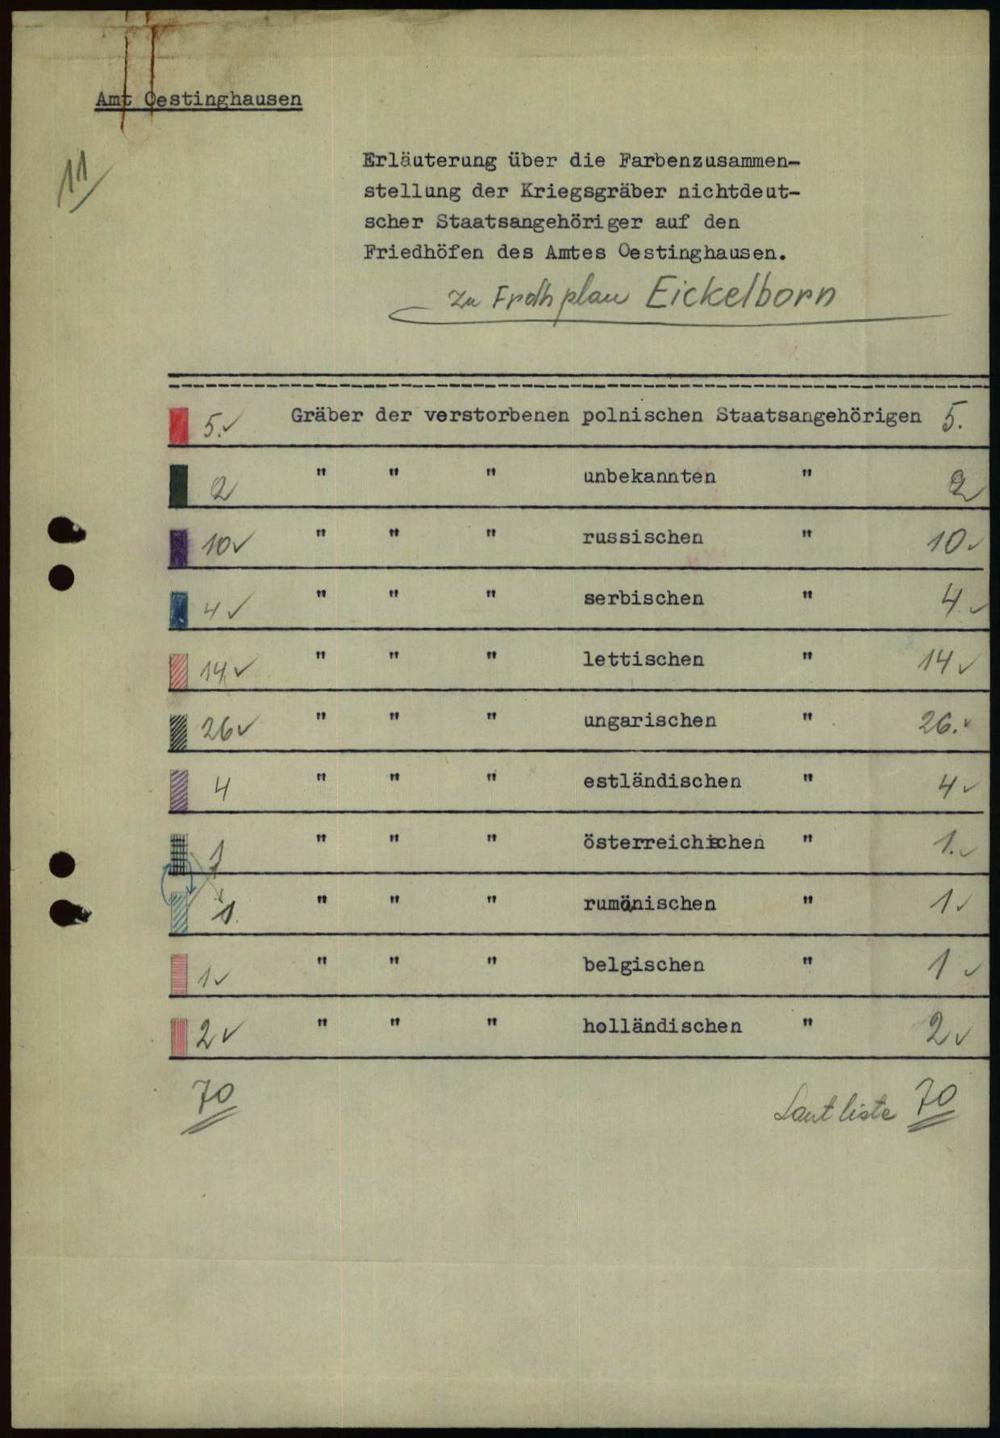 Amt Oestinghausen
11
Erläuterung über die Farbenzusammen-
stellung der Kriegsgräber nichtdeut-
scher Staatsangehöriger auf den
Friedhöfen des Amtes Oestinghausen.
zu Frdhplan Eickelborn
5.✓ Gräber der verstorbenen polnischen Staatsangehörigen 5.
2 " " " unbekannten " 2
10✓ " " " russischen " 10.✓
4✓ " " " serbischen " 4.✓
14✓ " " " lettischen " 14✓
26✓ " " " ungarischen " 26.✓
4 " " " estländischen " 4✓
1 " " " österreichischen " 1.✓
1. " " " rumänischen " 1✓
1✓ " " " belgischen " 1✓
2✓ " " " holländischen " 2✓
70 Laut liste 70